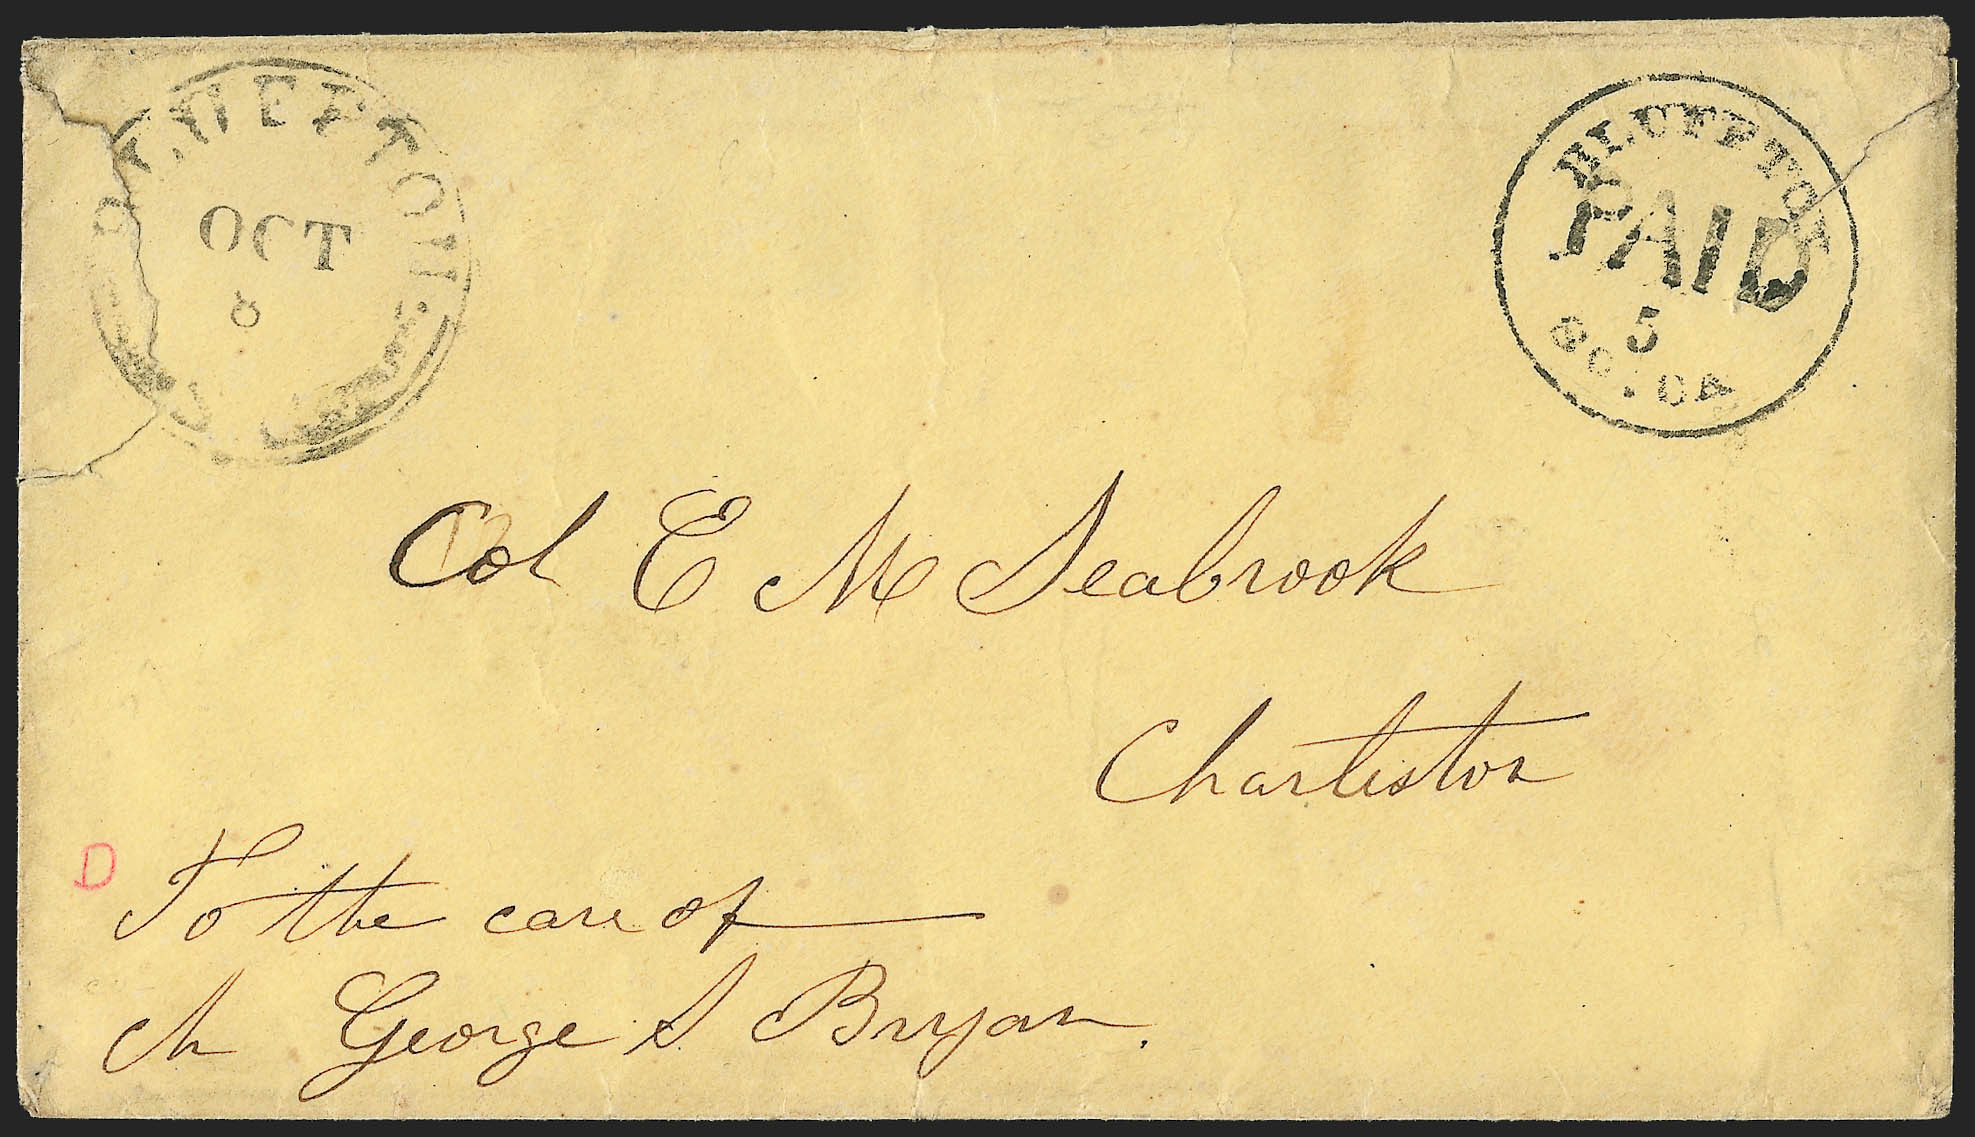 BLUFFTON S.C.
OCT
8
BLUFFTON
PAID
5
SO. CA
Col E M Seabrook
Charleston
D
To the care of
Mr George S Bryan.